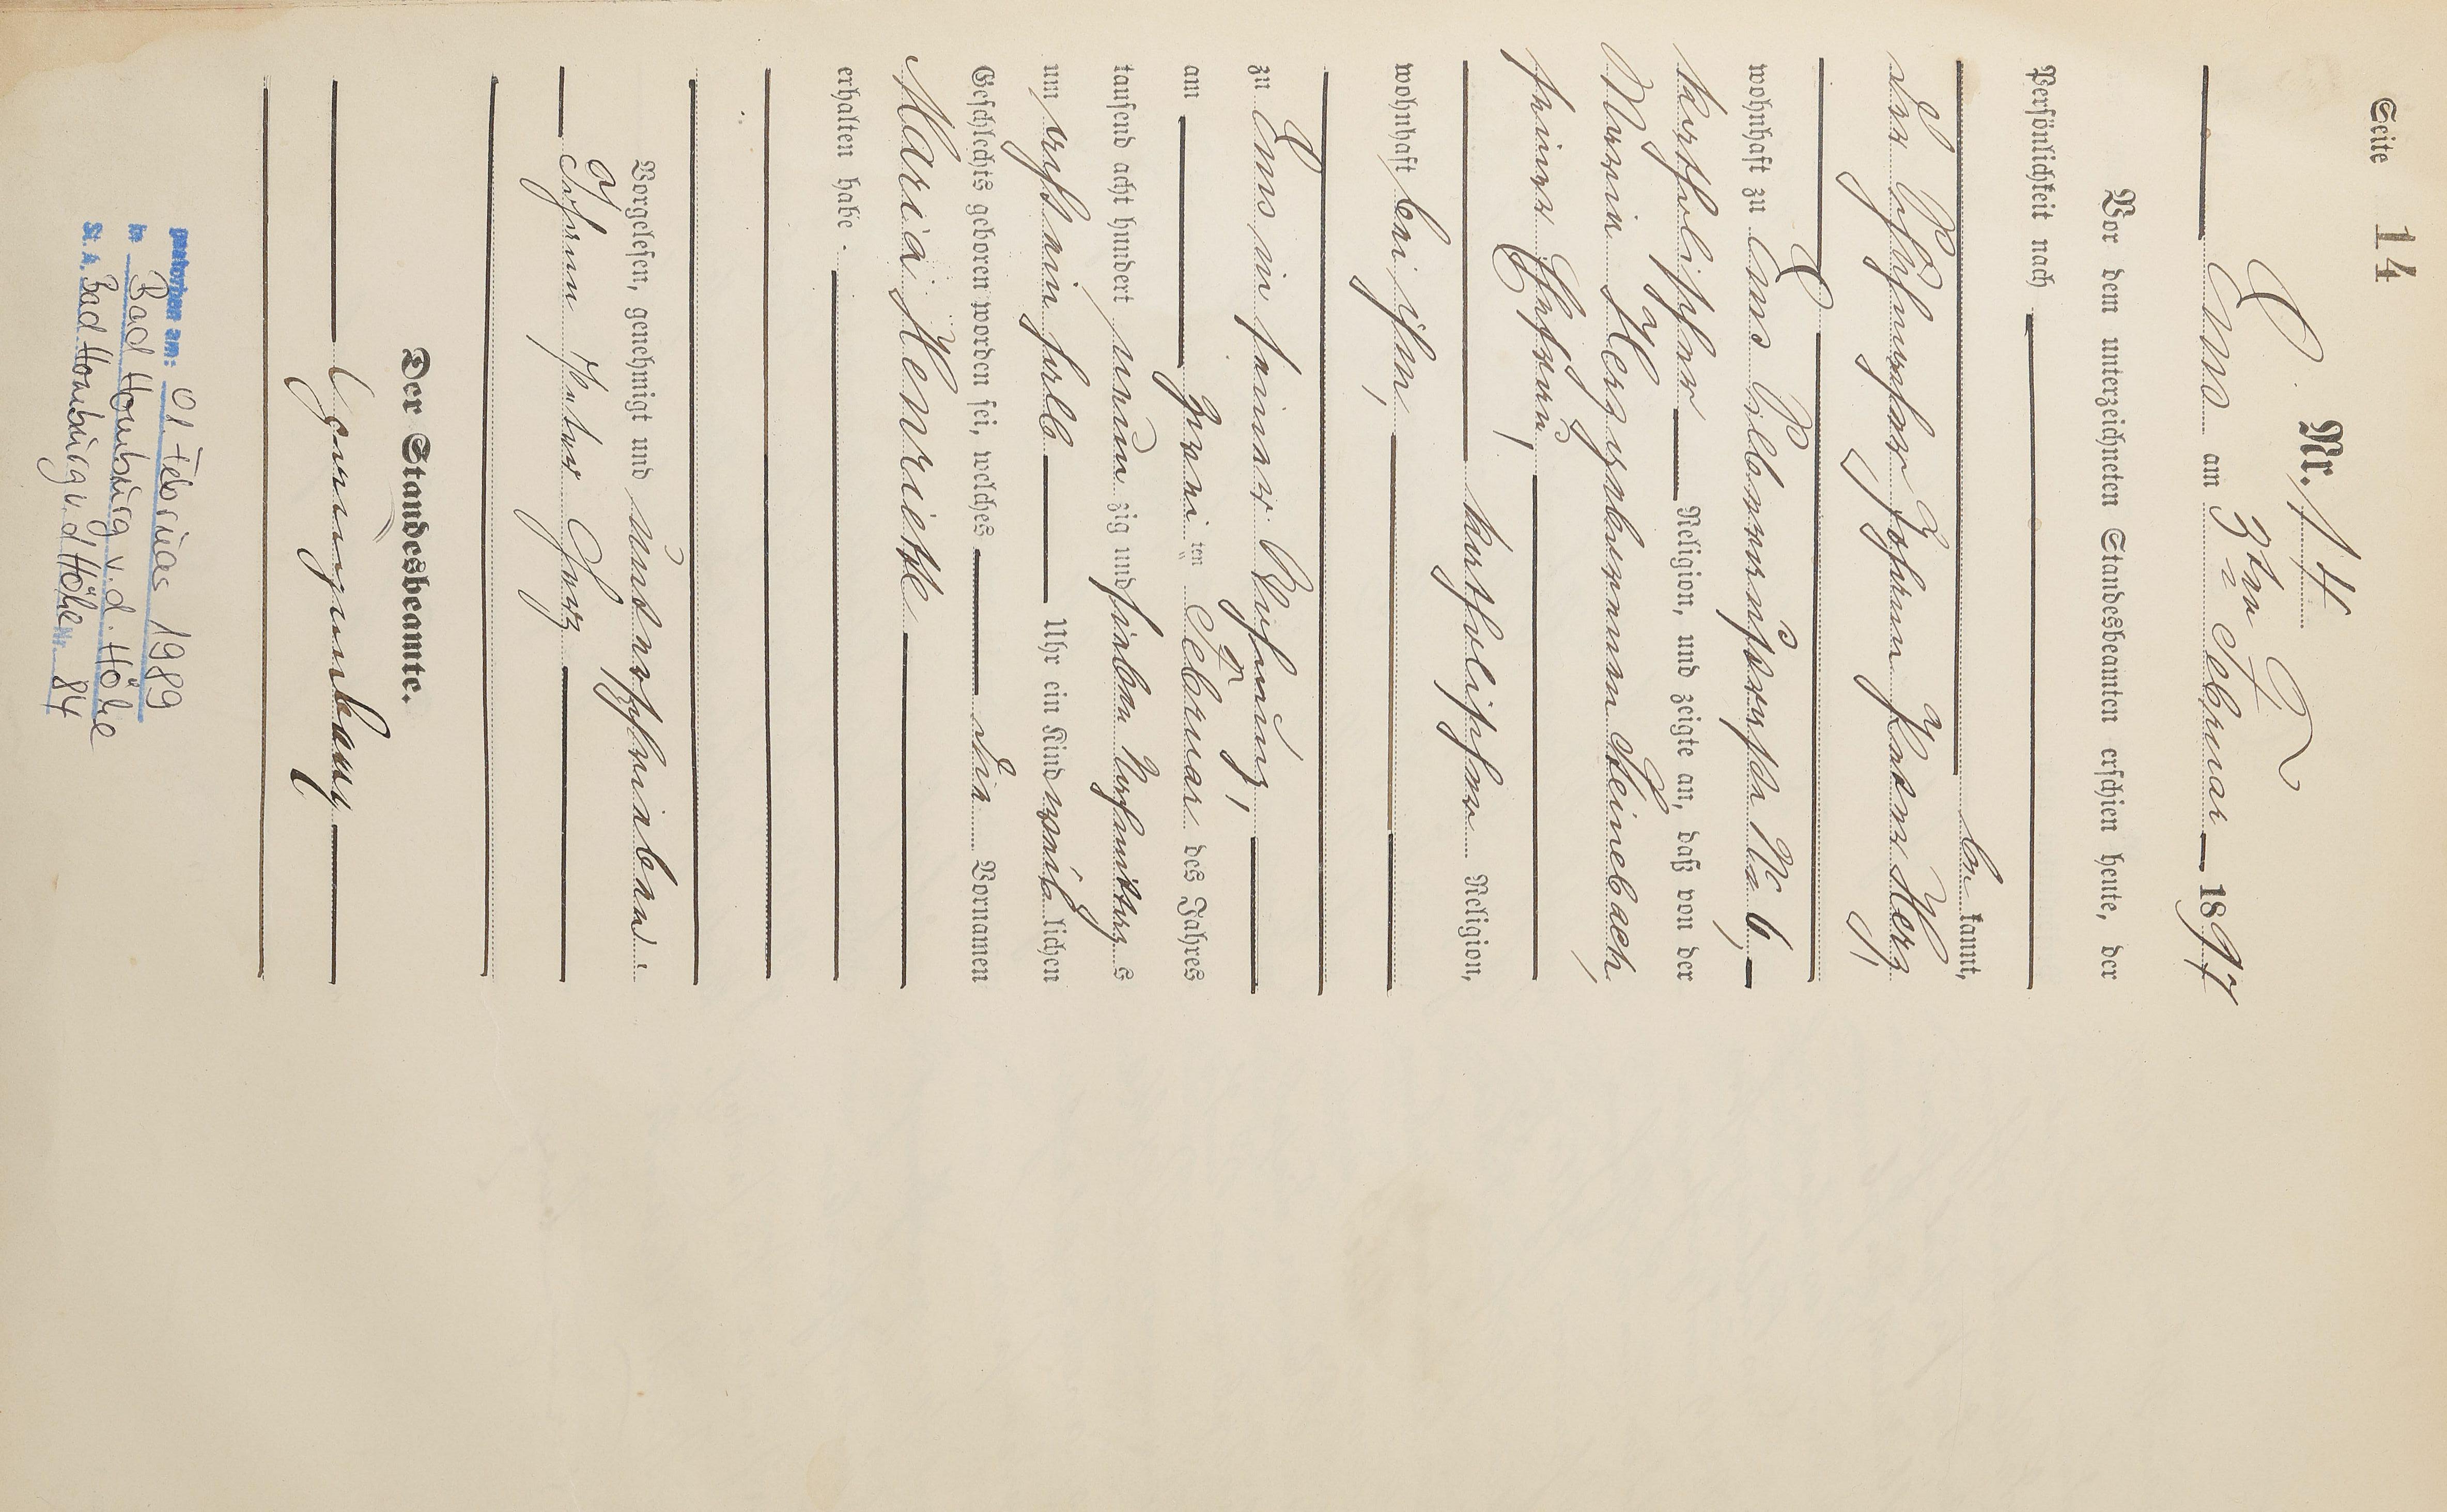 Seite 14
Nr. 14
Ems am 3ten Februar 1897
Vor dem unterzeichneten Standesbeamten erschien heute, der
Persönlichkeit nach
be kannt,
der Schuhmacher Johann Peter Herz,
wohnhaft zu Ems Silberaustraße No 6,
katholischer Religion, und zeigte an, daß von der
Maria Herz geborenen Steinebach,
seiner Ehefrau,
katholischer Religion,
wohnhaft bei ihm,
zu Ems in seiner Wohnung,
am zwei ten Februar des Jahres
tausend acht hundert neun zig und sieben Nachmittag s
um acht ein halb Uhr ein Kind weib lichen
Geschlechts geboren worden sei, welches die Vornamen
Maria Henriette
erhalten habe.
Vorgelesen, genehmigt und unterschrieben.
Johann Peter Herz
Der Standesbeamte.
gestorben am: 01. Februar 1989
in Bad Homburg v. d. Höhe
St. A. Bad Homburg v. d. Höhe Nr. 84